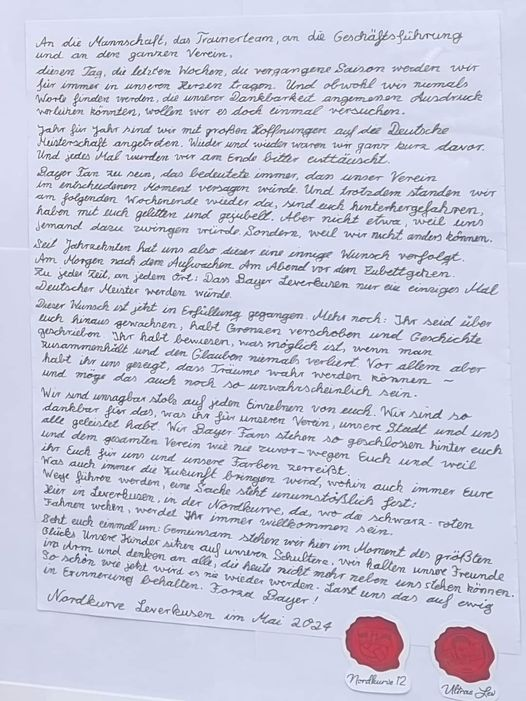 An die Mannschaft, das Trainerteam, an die Geschäftsführung
und an den ganzen Verein,
diesen Tag, die letzten Wochen, die vergangene Saison werden wir
für immer in unseren Herzen tragen. Und obwohl wir niemals
Worte finden werden, die unserer Dankbarkeit angemessen Ausdruck
verleihen könnten, wollen wir es doch einmal versuchen.
Jahr für Jahr sind wir mit großen Hoffnungen auf die Deutsche
Meisterschaft angetreten. Wieder und wieder waren wir ganz kurz davor.
Und jedes Mal wurden wir am Ende bitter enttäuscht.
Bayer Fan zu sein, das bedeutete immer, dass unser Verein
im entscheidenen Moment versagen würde. Und trotzdem standen wir
am folgenden Wochenende wieder da, sind euch hinterhergefahren,
haben mit euch gelitten und gejubelt. Aber nicht etwa, weil uns
jemand dazu zwingen würde. Sondern, weil wir nicht anders können.
Seit Jahrzehnten hat uns also dieser eine innige Wunsch verfolgt.
Am Morgen nach dem Aufwachen. Am Abend vor dem Zubettgehen.
Zu jeder Zeit, an jedem Ort: Dass Bayer Leverkusen nur ein einziges Mal
Deutscher Meister werden würde.
Dieser Wunsch ist jetzt in Erfüllung gegangen. Mehr noch: Ihr seid über
euch hinaus gewachsen, habt Grenzen verschoben und Geschichte
geschrieben. Ihr habt bewiesen, was möglich ist, wenn man
zusammenhält und den Glauben niemals verliert. Vor allem aber
habt ihr uns gezeigt, dass Träume wahr werden können –
und möge das auch noch so unwahrscheinlich sein.
Wir sind unsagbar stolz auf jeden Einzelnen von euch. Wir sind so
dankbar für das, was ihr für unseren Verein, unsere Stadt und uns
alle geleistet habt. Wir Bayer Fans stehen so geschlossen hinter euch
und dem gesamten Verein wie nie zuvor – wegen Euch und weil
ihr Euch für uns und unsere Farben zerreißt.
Was auch immer die Zukunft bringen wird, wohin auch immer Eure
Wege führen werden, eine Sache steht unumstößlich fest:
Hier in Leverkusen, in der Nordkurve, da, wo die schwarz-roten
Fahnen wehen, werdet Ihr immer willkommen sein.
Seht euch einmal um: Gemeinsam stehen wir hier im Moment des größten
Glücks. Unsere Kinder sitzen auf unseren Schultern, wir halten unsere Freunde
im Arm und denken an alle, die heute nicht mehr neben uns stehen können.
So schön wie jetzt wird es nie wieder werden. Lasst uns das auf ewig
in Erinnerung behalten. Forza Bayer!
Nordkurve Leverkusen im Mai 2024
Nordkurve 12
Ultras Lev